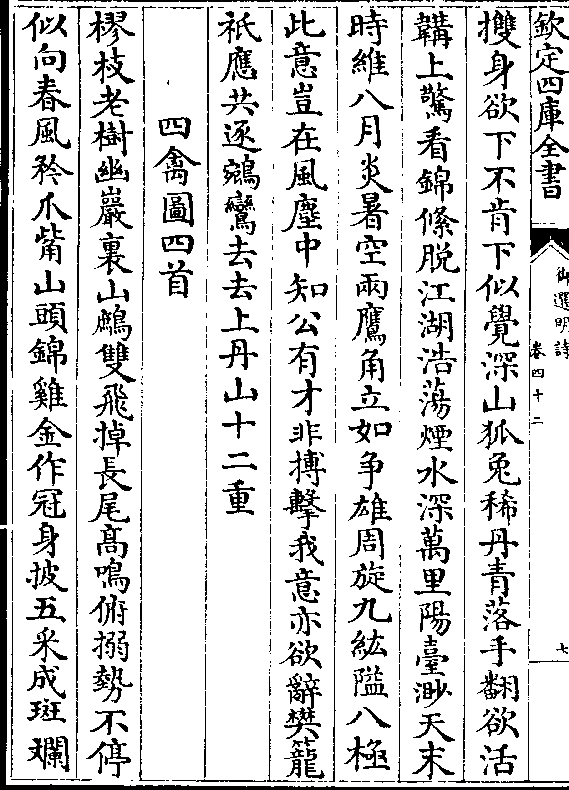 欽定四庫全書
御選明詩
卷四十二
七
㩳身欲下不肯下似覺深山狐兔稀丹青落手翻欲活
韝上驚看錦絛脱江湖浩蕩煙水深萬里陽臺渺天末
時維八月炎暑空兩鷹角立如争雄周旋九紘隘八極
此意豈在風塵中知公有才非搏擊我意亦欲辭樊籠
祇應共逐鵷鸞去去上丹山十二重
四禽圖四首
樛枝老樹幽巖裏山鷓雙飛掉長尾髙鳴俯搦勢不停
似向春風矜爪觜山頭錦雞金作冠身披五采成斑斕